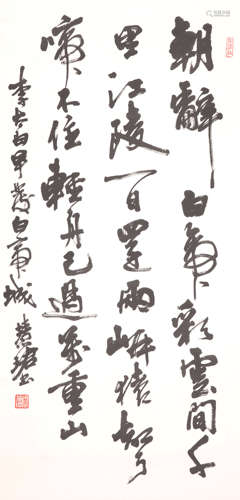 朝辭白帝彩雲間千
里江陵一日還兩岸猿聲
啼不住輕舟已過萬重山
李太白早發白帝城